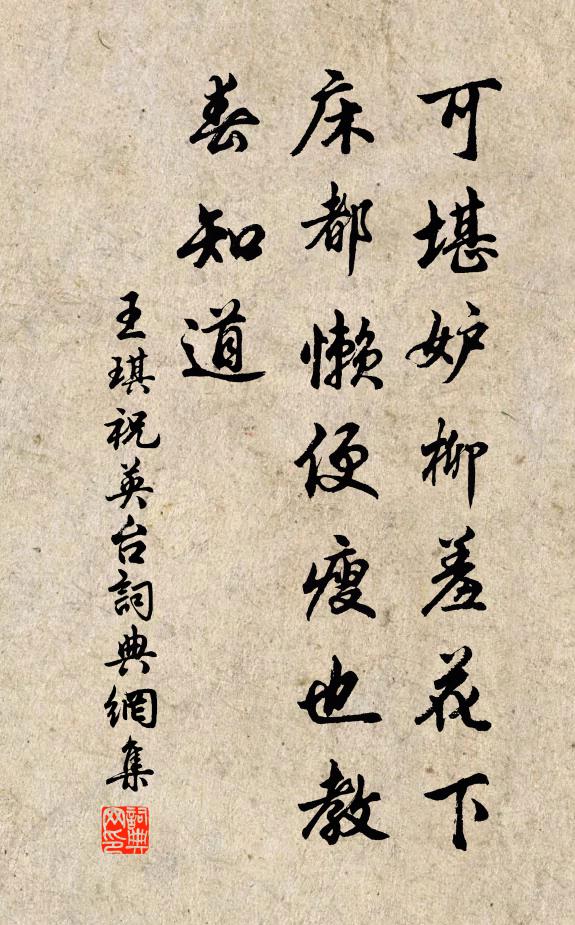 可堪妒柳羞花下
床都懒便瘦也教
春知道
王琪祝英台詞典網集
詞典网印